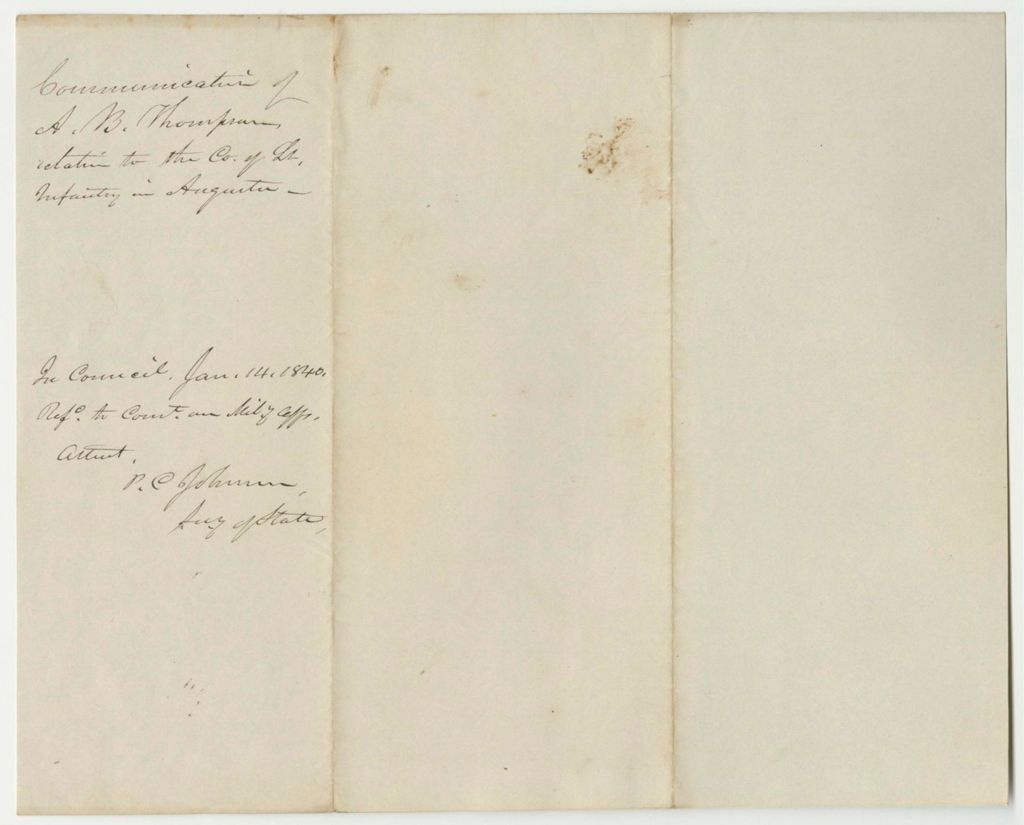 Communication of
A. B. Thompson
relative to the Co. of Lt.
Infantry in Augusta —
In Council. Jan. 14. 1840.
Refd. to Comt. on Mily Affs.
Attest,
P. C. Johnson,
Secy of State,